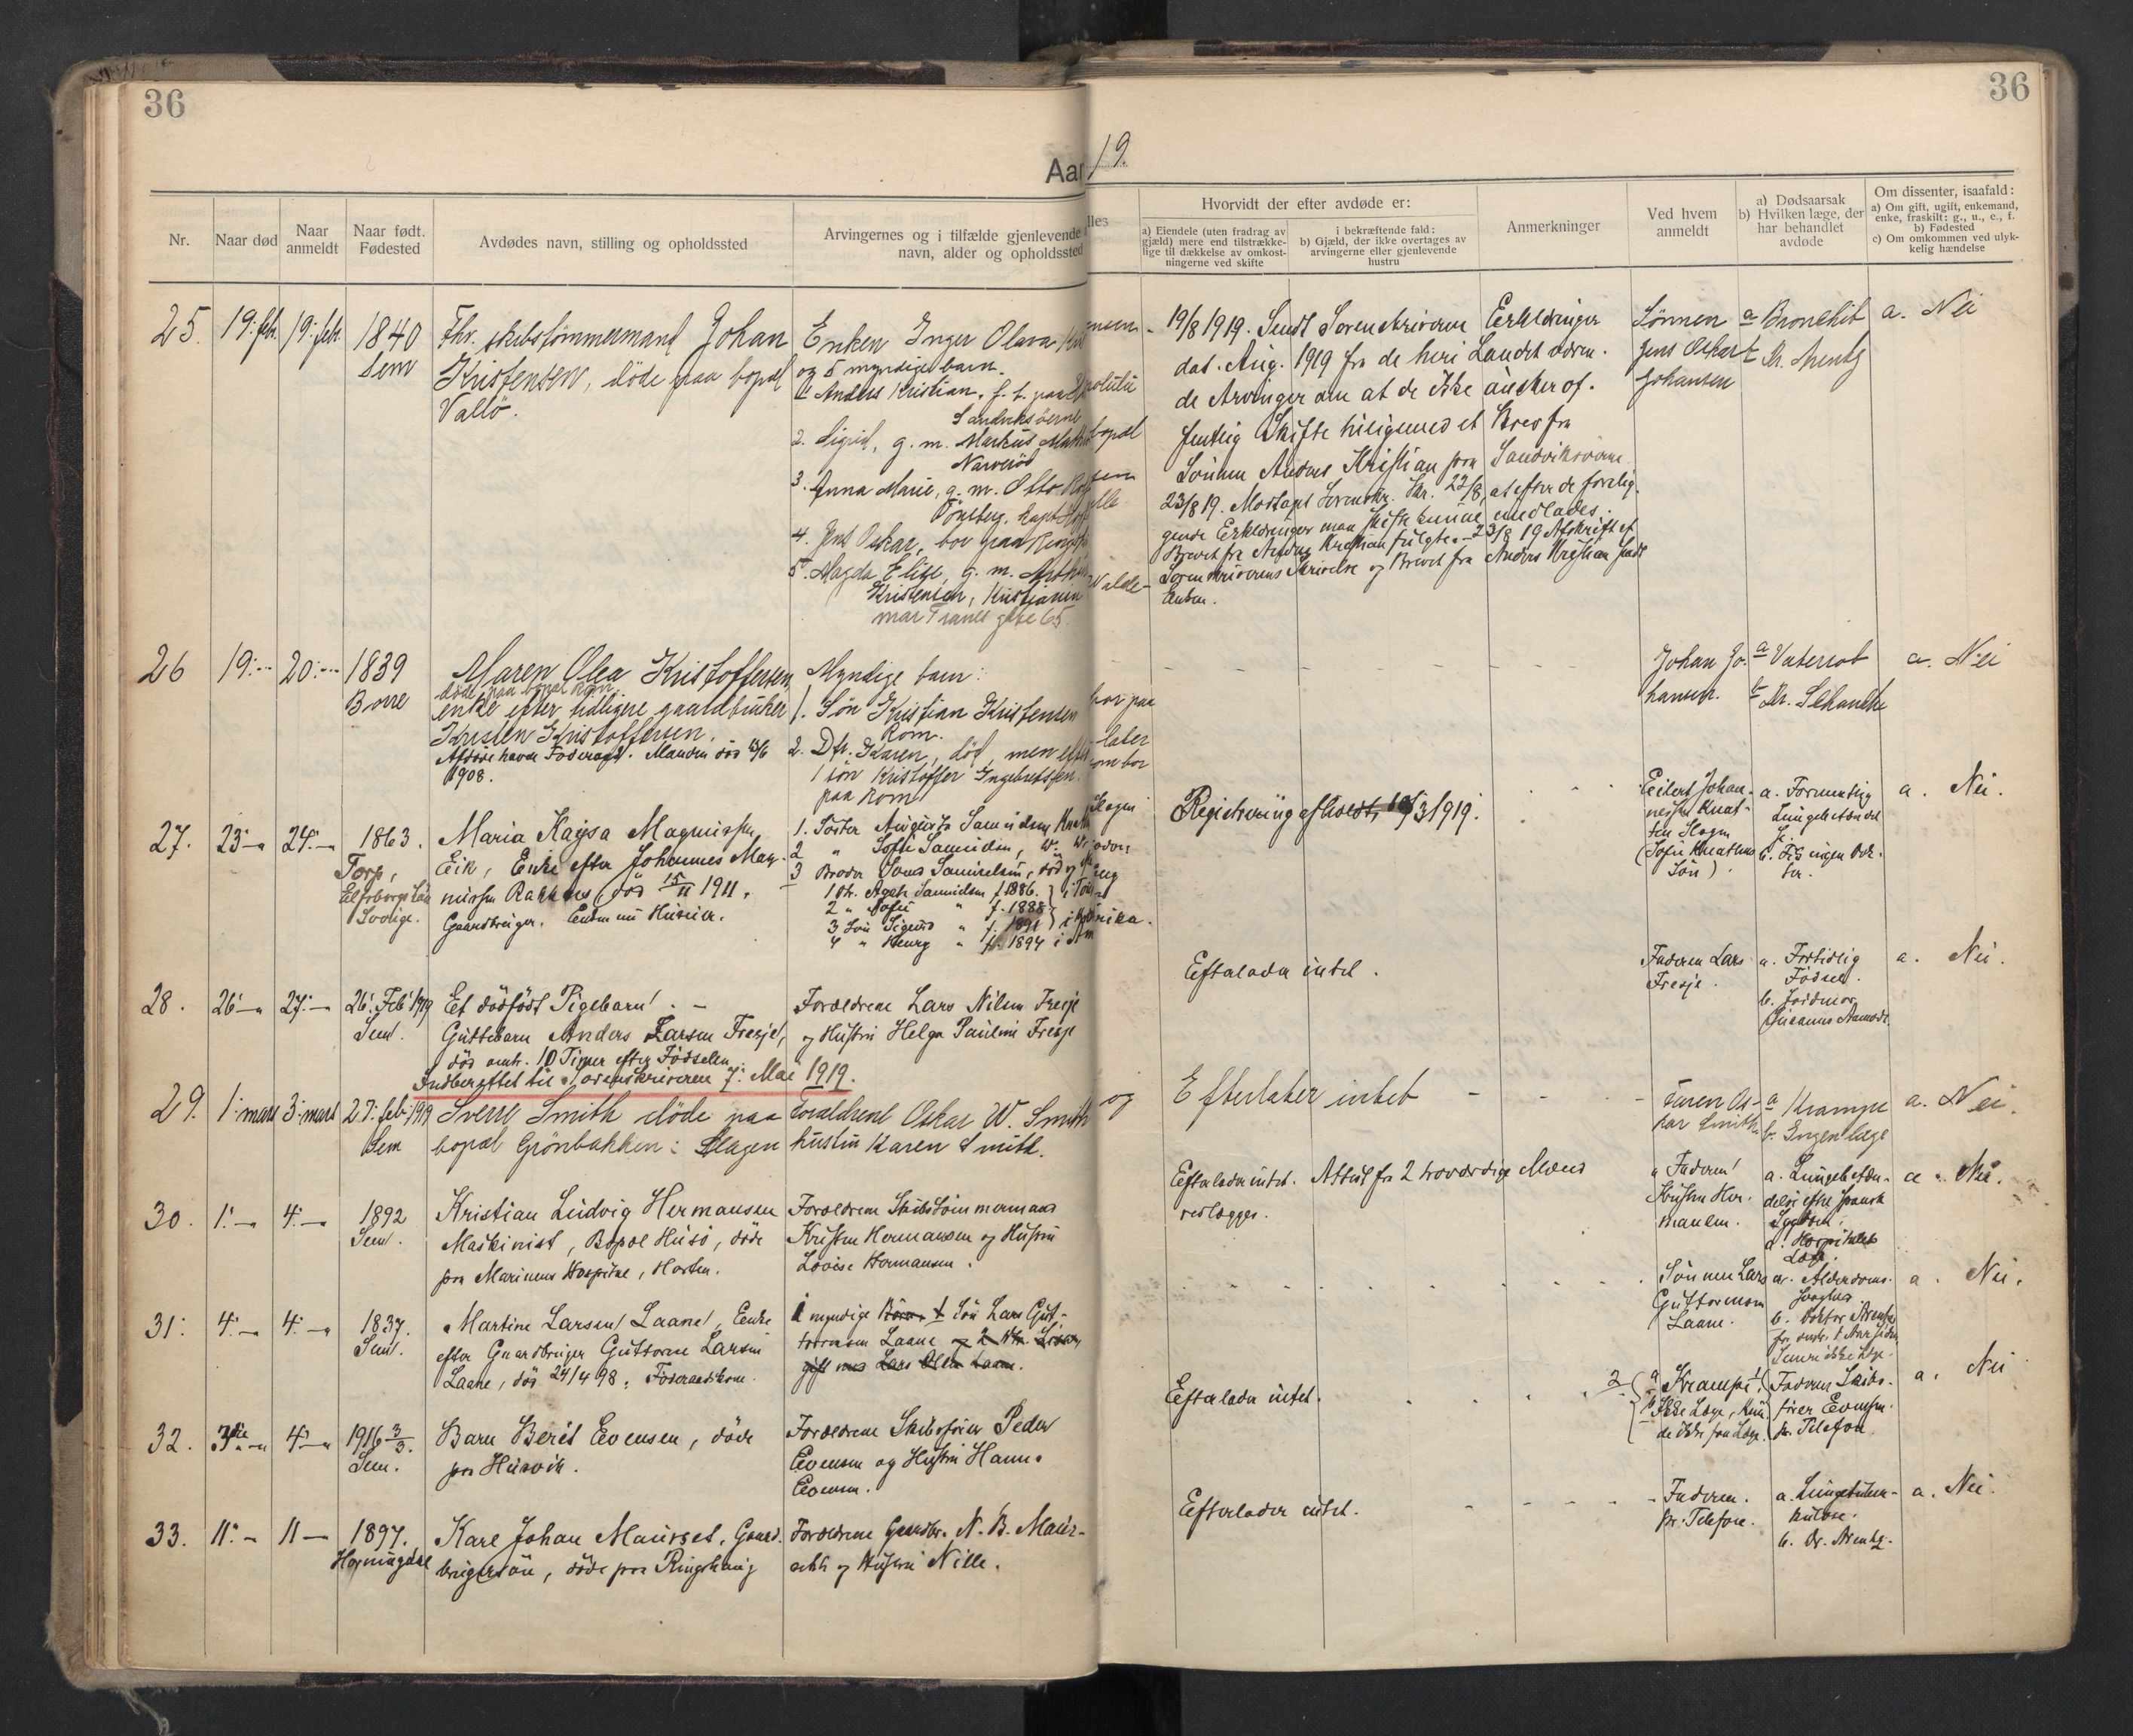 36
36
Aar 19.
Nr.
Naar død
Naar
anmeldt
Naar født.
Fødested
Avdødes navn, stilling og opholdssted
Arvingernes og i tilfælde gjenlevende
navn, alder og opholdssted
lles
Hvorvidt der efter avdøde er:
a) Eiendele (uten fradrag av
gjæld) mere end tilstrække-
lige til dækkelse av omkost-
ningerne ved skifte
i bekræftende fald:
b) Gjæld, der ikke overtages av
arvingerne eller gjenlevende
hustru
Anmerkninger
Ved hvem
anmeldt
a) Dødsaarsak
b) Hvilken læge, der
har behandlet
avdøde
Om dissenter, isaafald:
a) Om gift, ugift, enkemand,
enke, fraskilt: g., u., e., f.
b) Fødested
c) Om omkommen ved ulyk-
kelig hændelse
25. 19. feb. 19. feb. 1840
Sem
Fhv. skibstømmermand Johan
Kristensen, døde paa bopæl
Vallö.
Enken Inger Olava
og 5 myndige barn.
1. Anders Kristian, f. t. paa
Sandviksöerne
2. Sigrid, g. m. Markus
Narverød
3. Anna Marie, g. m. Otto
Tönsberg.
4. Jens Oskar, bor paa
5. Magda Elise, g. m.
Kristensen, Kristiania Walde-
mar Tranes gate 65.
19/8 1919. Sendt Sorenskriveren Erklæringer
dat. Aug. 1919 fra de heri Landet væren-
de Arvinger om at de ikke ønsker of-
fentlig Skifte tilligemed et Brev fra
Sönnen Anders Kristian paa Sandviksöerne.
23/8 19. Modtaget Sorenskr. Skr. 22/8, at efter de forelig-
gende Erklæringer maa Skifte kunne undlades.
Brevet fra Anders Kristian fulgte. - 23/8 19 Afskrift af
Sorenskriverens Skrivelse og Brevet fra Anders Kristian sendt
Enken.
Sønnen
Jens Oskar
Johansen
a Bronchit
b Dr. Arentz
a. Nei
26 19. 20. 1839
Borre
Maren Olea Kristoffersen,
døde paa bopæl Rom,
enke efter tidligere gaardbruker
Kristen Kristoffersen.
Afdøde havde Føderaad. Manden død
1908.
Myndige barn:
1. Søn Kristian Kristensen bor paa
Rom.
2. Dtr. Karen, død, men efterlater
1 søn Kristoffer Ingebretsen, som bor
paa Rom
Johan Jo-
hansen.
a
b Dr. Schanche
a. Nei
27. 23 24. 1863.
Torp,
Elfsborgs Län
Sverige.
Maria Kajsa Magnussen,
Eik, Enke efter Johannes Mag-
nussen, død 15/11 1911,
Gaardbruger.
1. Søster Augusta Samuelsen Slagen
2 " Sofie Samuelsen,
3 Broder Samuelsen, død og
1 Dtr. Agath Samuelsen f. 1886.
2 " Sofie " f. 1888
3 Søn Sigurd " f. 1891
4 " Henry " f. 1894 i Amerika.
Registrering afholdt 3/1919.
Eilert Johan-
nessen
Slagen
(Sofie
Søn)
a. Formentlig
Lungebetændel
se.
b. ingen Dok-
tor.
a. Nei.
28. 26 27. 26. Feb. 1919
Sem.
Et dødfödt Pigebarn. -
Guttebarn Anders Larsen Fresje,
død omtr. 10 Timer efter Fødselen.
Indberettet til Sorenskriveren 7. Mai 1919.
Forældrene Lars Nilsen Fresje
og Hustru Helga Pauline Fresje
Efterlader intet.
Faderen Lars
Fresje.
a. Fortidlig
Fødsel.
b. Jordmor
a. Nei.
29. 1. mars 3. mars 27. feb. 1919
Sem
Sverre Smith döde paa
bopæl Grönbakken i Slagen
Forældrene Oskar W. Smith og
hustru Karen Smith.
Efterlater intet
Faren Os-
kar Smith
a Krampe
b. Ingen læge
a. Nei.
30. 1. 4. 1892
Sem.
Kristian Ludvig Hermansen
Maskinist, Bopæl Husö, døde
paa Marinens Hospital, Horten.
Forældrene Skibstömmermand
Kristen Hermansen og Hustru
Lovise Hermansen.
Efterlader intet. Attest fra 2 troværdige Mænd
vedlægges.
Faderen
Kristen Her-
mansen.
a. Lungebetæn-
delse efter spansk
Sygdom.
Hospitalets
Læge.
a. Nei.
31. 4. 4. 1837.
Sem.
Martine Larsen Laane, Enke
efter Gaardbruger Guttorm Larsen
Laane, død 24/4 98. Føderaadskone.
1 myndige Børn, 1 Søn Lars Gut-
tormsen Laane og 2 Dtr.
gift med Lars Olsen Laane.
Sønnen Lars
Guttormsen
Laane.
a. Alderdoms-
svaghed
b. Doktor Arentz
for omtr. 1 Aar siden,
Senere ikke Læge.
a. Nei.
32. 3. 4. 1916 3/3.
Sem.
Barn Berit Evensen, døde
paa Husvik.
Forældrene Skibsfører Peder
Evensen og Hustru Hanna
Evensen.
Efterlader intet.
2
a Krampe.
b Ikke Læge, kun-
de ikke faa Læge.
1
Faderen Skibs-
fører Evensen.
pr. Telefon.
a. Nei
33. 11. 11 1897.
Hornindal
Karl Johan Maurset, Gaard-
brugersön, døde paa Ringshaug
Forældrene Gaardbr. N. B. Maur-
seth og Hustru Nille.
Efterlader intet.
Faderen.
pr. Telefon.
a. Lungetuber-
kulose.
b. Dr. Arentz.
a. Nei.